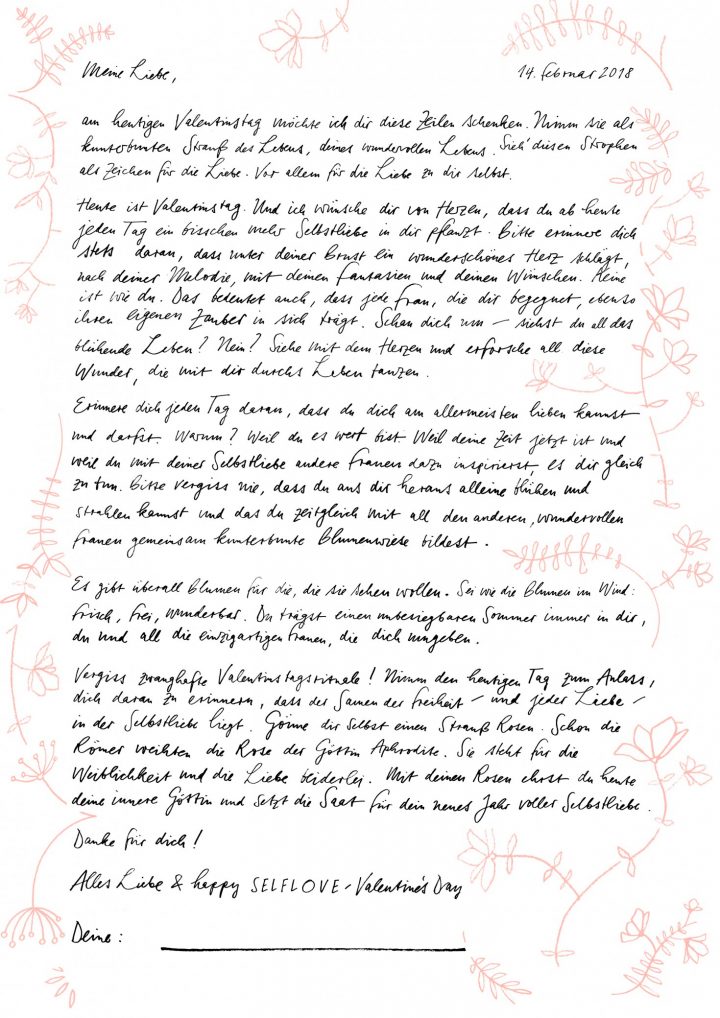 Meine Liebe,
14. Februar 2018
am heutigen Valentinstag möchte ich dir diese Zeilen schenken. Nimm sie als
kunterbunten Strauß des Lebens, deines wundervollen Lebens. Sieh' diesen Strophen
als Zeichen für die Liebe. Vor allem für die Liebe zu dir selbst.
Heute ist Valentinstag. Und ich wünsche dir von Herzen, dass du ab heute
jeden Tag ein bisschen mehr Selbstliebe in dir pflanzt. Bitte erinnere dich
stets daran, dass unter deiner Brust ein wunderschönes Herz schlägt,
nach deiner Melodie, mit deinen Fantasien und deinen Wünschen. Keine
ist wie du. Das bedeutet auch, dass jede Frau, die dir begegnet, ebenso
ihren eigenen Zauber in sich trägt. Schau dich um – siehst du all das
blühende Leben? Nein? Siehe mit dem Herzen und erforsche all diese
Wunder, die mit dir durchs Leben tanzen.
Erinnere dich jeden Tag daran, dass du dich am allermeisten lieben kannst
und darfst. Warum? Weil du es wert bist. Weil deine Zeit jetzt ist und
weil du mit deiner Selbstliebe andere Frauen dazu inspirierst, es dir gleich
zu tun. Bitte vergiss nie, dass du aus dir heraus alleine blühen und
strahlen kannst und das du zeitgleich mit all den anderen, wundervollen
Frauen gemeinsam kunterbunte Blumenwiese bildest.
Es gibt überall Blumen für die, die sie sehen wollen. Sei wie die Blumen im Wind:
frisch, frei, wunderbar. Du trägst einen unbesiegbaren Sommer immer in dir,
du und all die einzigartigen Frauen, die dich umgeben.
Vergiss zwanghafte Valentinstagsrituale! Nimm den heutigen Tag zum Anlass,
dich daran zu erinnern, dass der Samen der Freiheit – und jeder Liebe –
in der Selbstliebe liegt. Gönne dir selbst einen Strauß Rosen. Schon die
Römer weihten die Rose der Göttin Aphrodite. Sie steht für die
Weiblichkeit und die Liebe beiderlei. Mit deinen Rosen ehrst du heute
deine innere Göttin und setzt die Saat für dein neues Jahr voller Selbstliebe.
Danke für dich!
Alles Liebe & happy SELFLOVE-Valentine's Day
Deine: